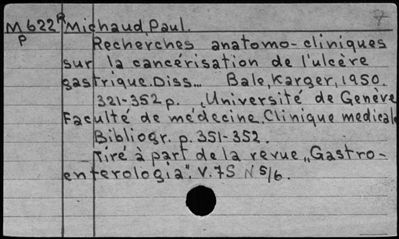 7
M622 R Michaud, Paul.
P
Recherches anatomo-cliniques
sur la cancérisation de l'ulcère
gastrique. Diss... Bale, Karger, 1950.
321-352 p. , Université de Genève
Faculté de médecine. Clinique medicale
Bibliogr. p. 351-352.
Tiré à part de la revue „Gastro-
enterologia". V. 75 N 5/6.